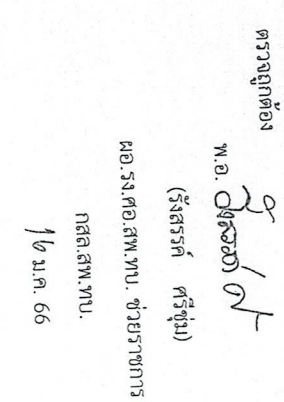 ตรวจถูกต้อง
พ.อ.
(รังสรรค์ ศรีชุ่ม)
ผอ.รง.ศอ.สพ.ทบ. ช่วยราชการ
กสล.สพ.ทบ.
ม.ค. 66